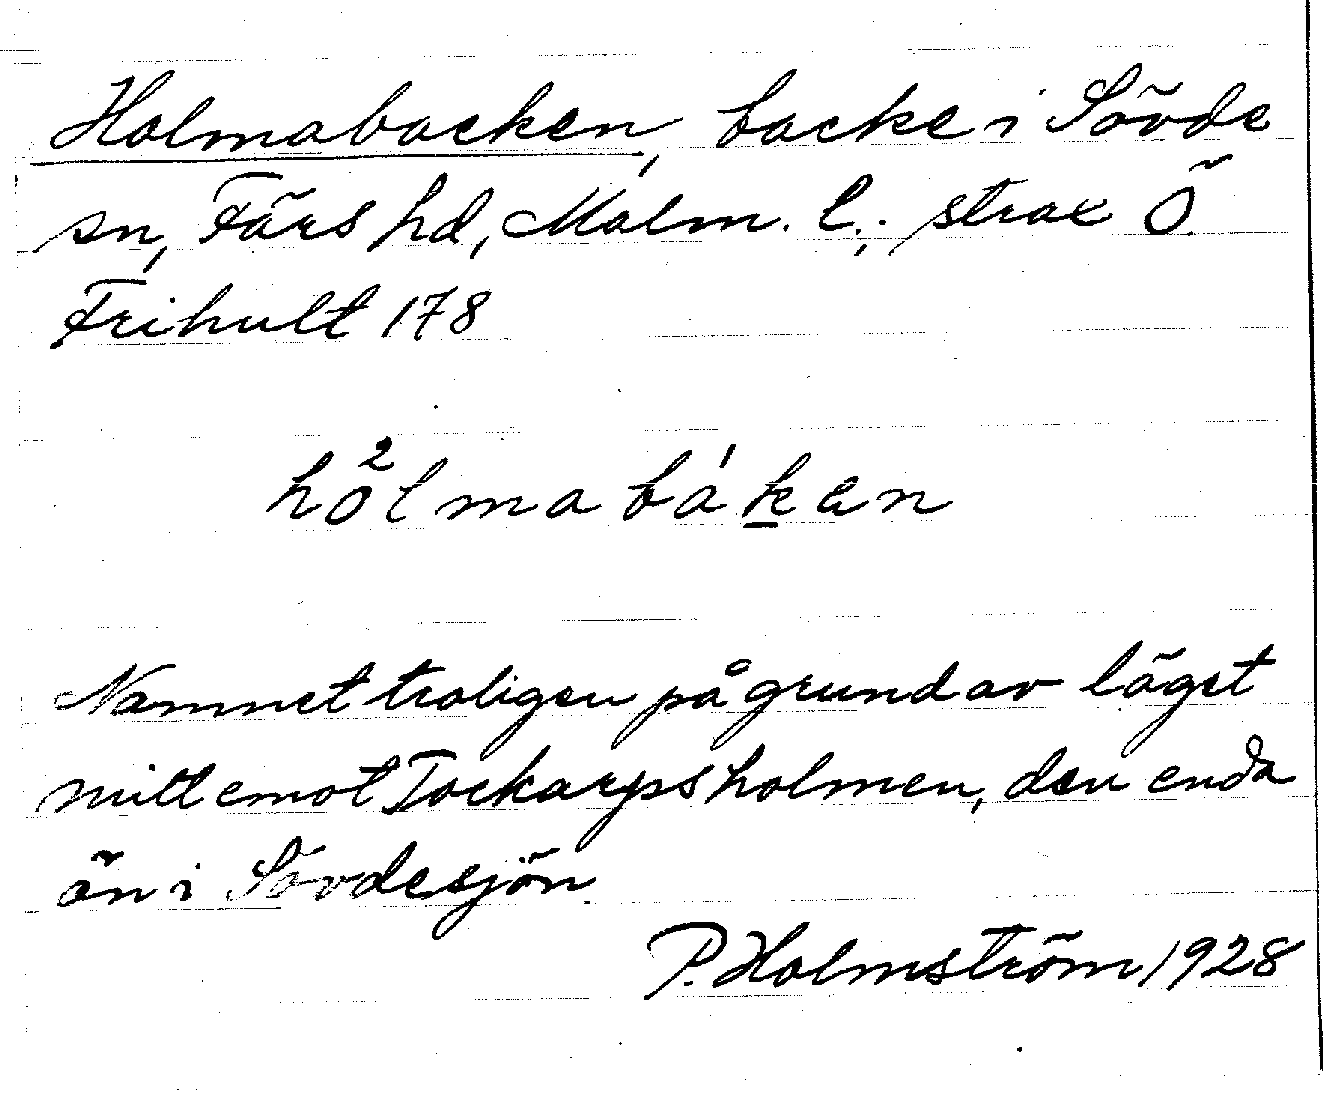 Holmabacken, backe i Sövde
sn, Färs hd, Malm. l.; strax Ö
Frihult 178
hòlmabáken
Namnet troligen på grund av läget
mitt emot Tockarpsholmen, den enda
ön i Sövdesjön.
P. Holmström 1928